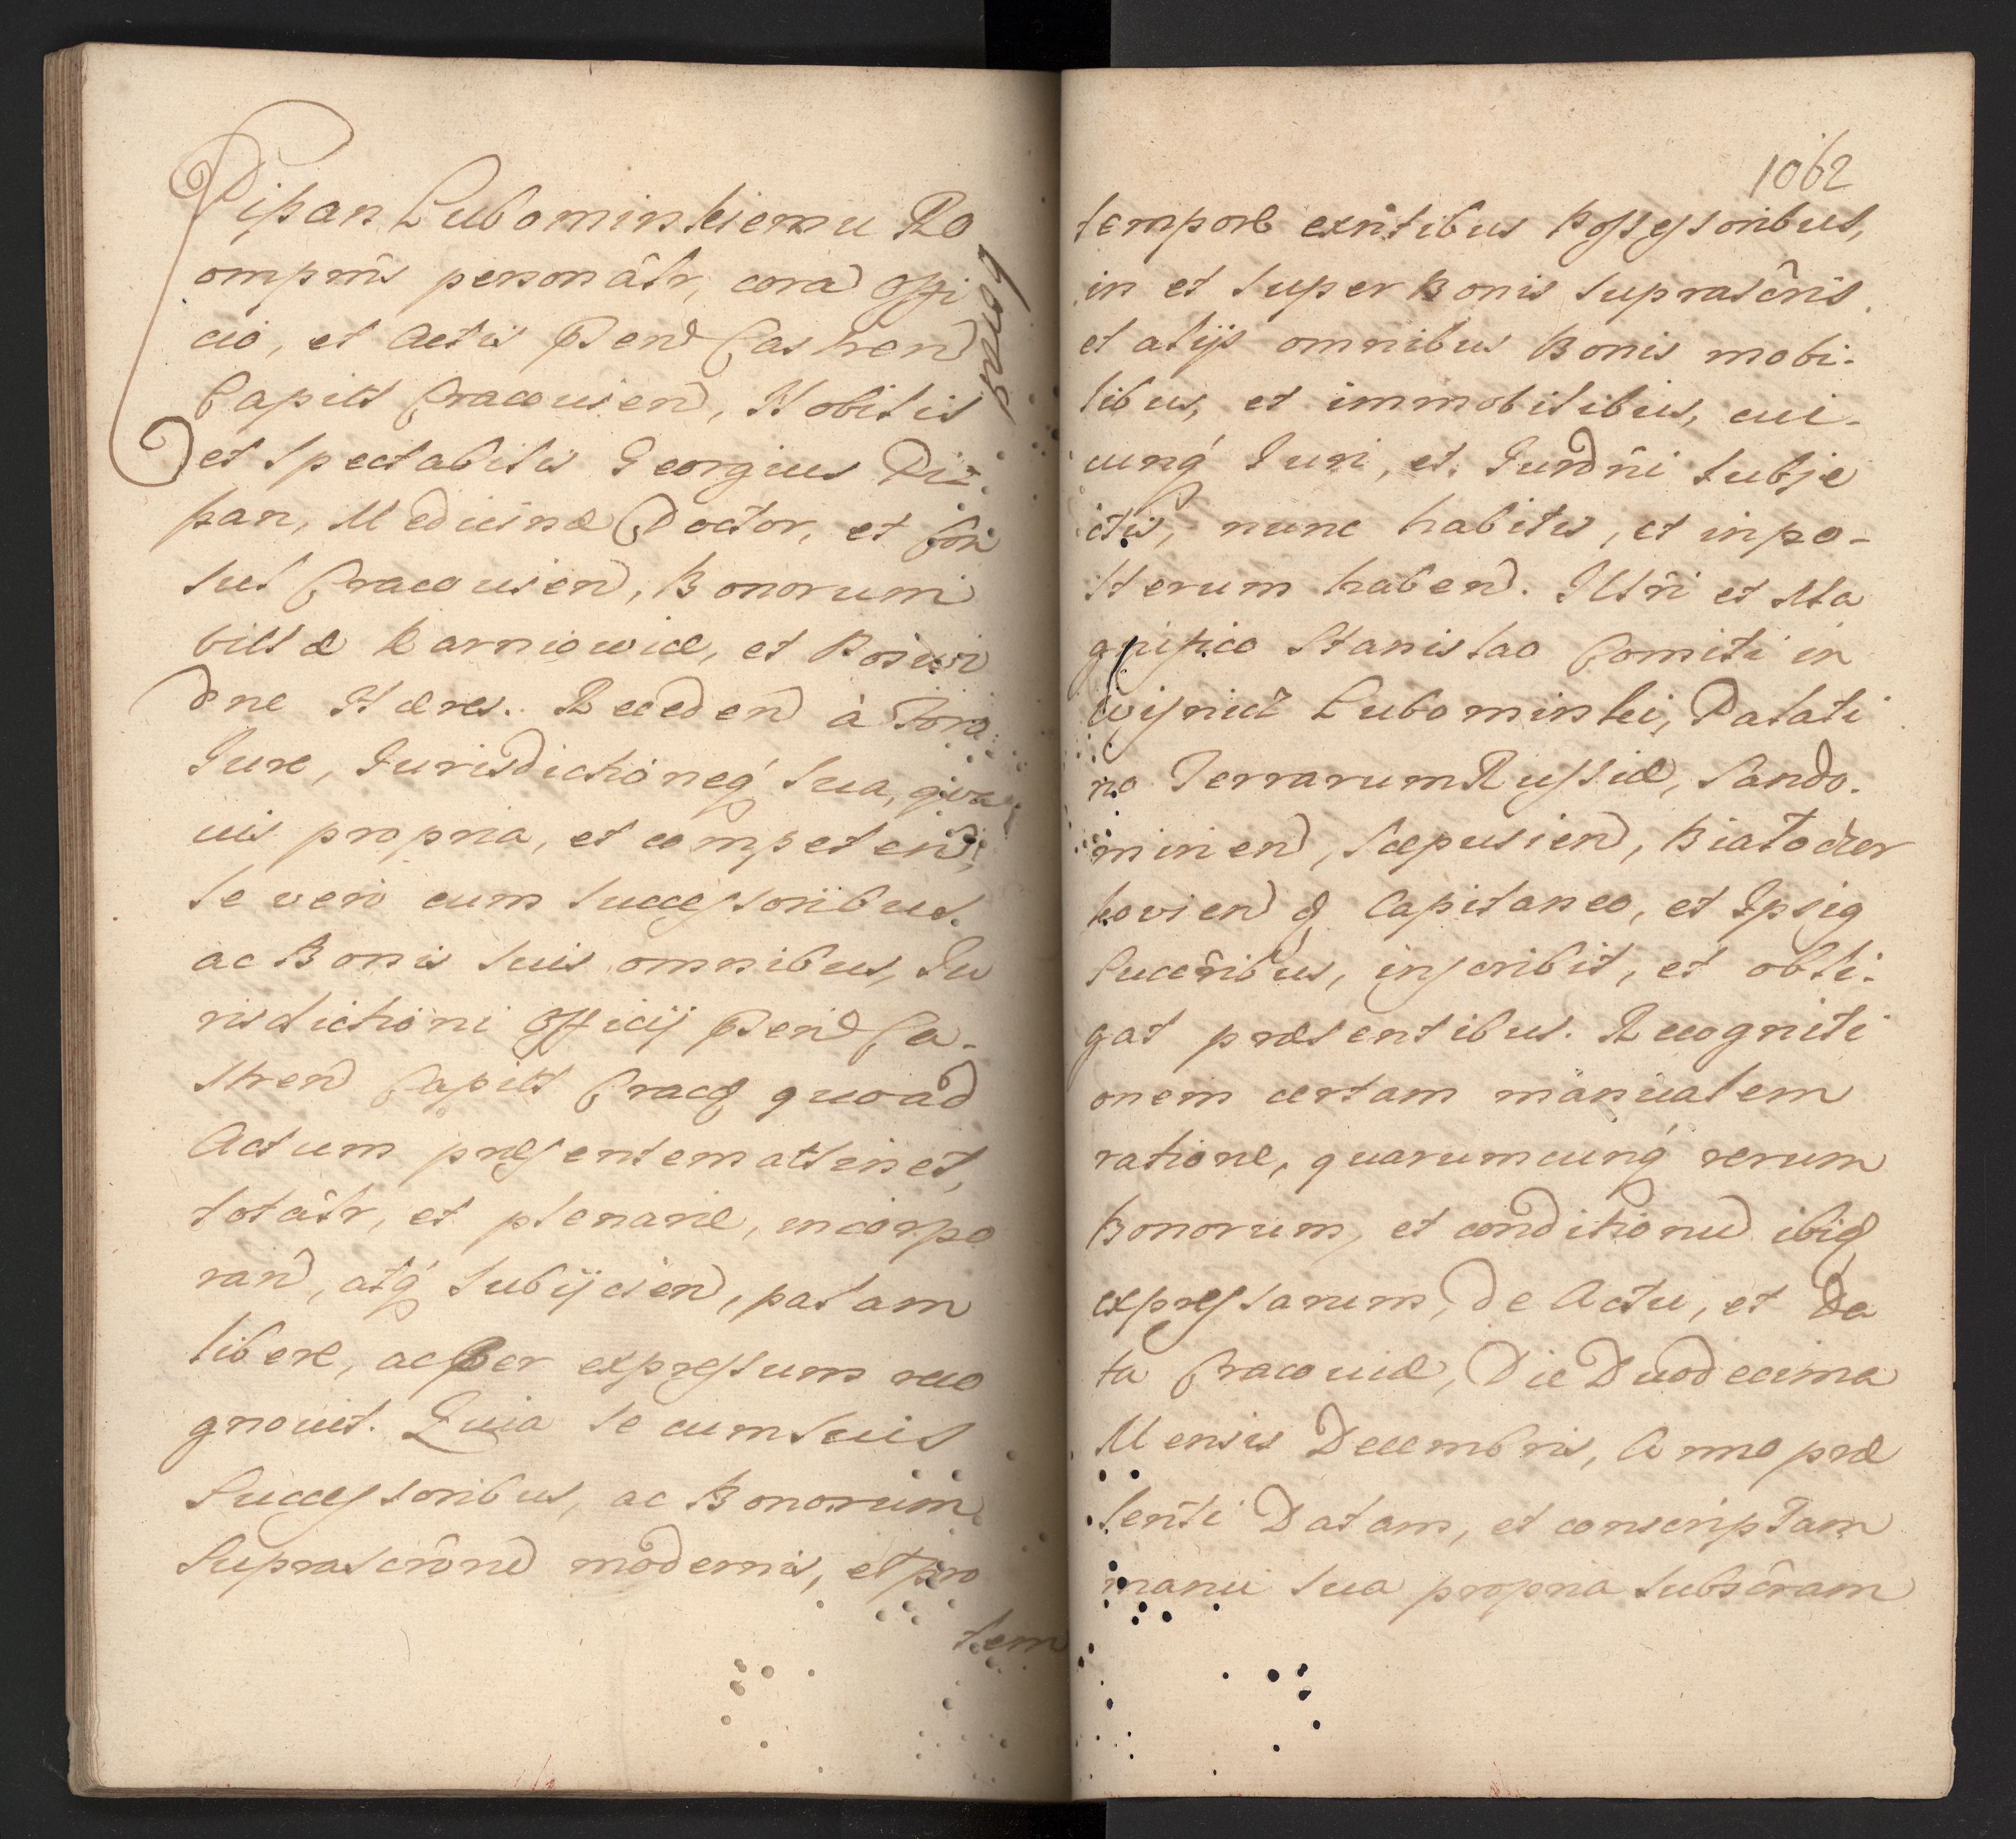 Pipan Lubomirskiemu Ro
omprns personâlr, corã Offi
cio, et Actis Pŝend Castrend
Capitt Cracovien, Nobilis
et Spectabilis Georgius Pi=
pan, Medicinæ Doctor, et Con
sul Cracovien, Bonorum
Villæ Karniowice, et
Hæres. Receden à Foro
Jure, Jurisdictioneq́ sua, qva
vis propria, et competen,
se vero cum successoribus
ac Bonis suis omnibus, Ju
risdictioni Officij Pŝend Ca-
strend Capitt Cracq quoad
Actum præsentem attinet,
totâlr, et plenarie, incorpo
rand, atq́ subijcien, palam
libere, ac per expressum reco
gnovit. Quia se cum suis
Successoribus, ac Bonorum
suprascrônd modernis, et pro
tem
1062
tempore exntibus Possessoribus,
in et super Bonis suprascrîis
et alijs omnibus Bonis mobi-
libus, et immobilibus, cui-
cunq́ Juri, et Jurdñi subje
ctis, nunc habitis, et in po-
sterum haben. Illŝri et Ma
gnifico Stanislao Comiti in
Wiśnicz Lubomirski, Palati
no Terrarum Russiæ, Sando-
mirien, Scepusien, Białocer
kovien q Capitaneo, et Ipsiq
Succrîbus, inscribit, et obli-
gat præsentibus. Recogniti
onem certam manualem
ratione, quarumcunq́ rerum
Bonorum, et conditionũ ibiq
expressarum, de Actu, et Da
ta Cracoviæ, Die Duodecima
Mensis Decembris, Anno præ
senti Datam, et conscriptam
manu sua propria subscrâm